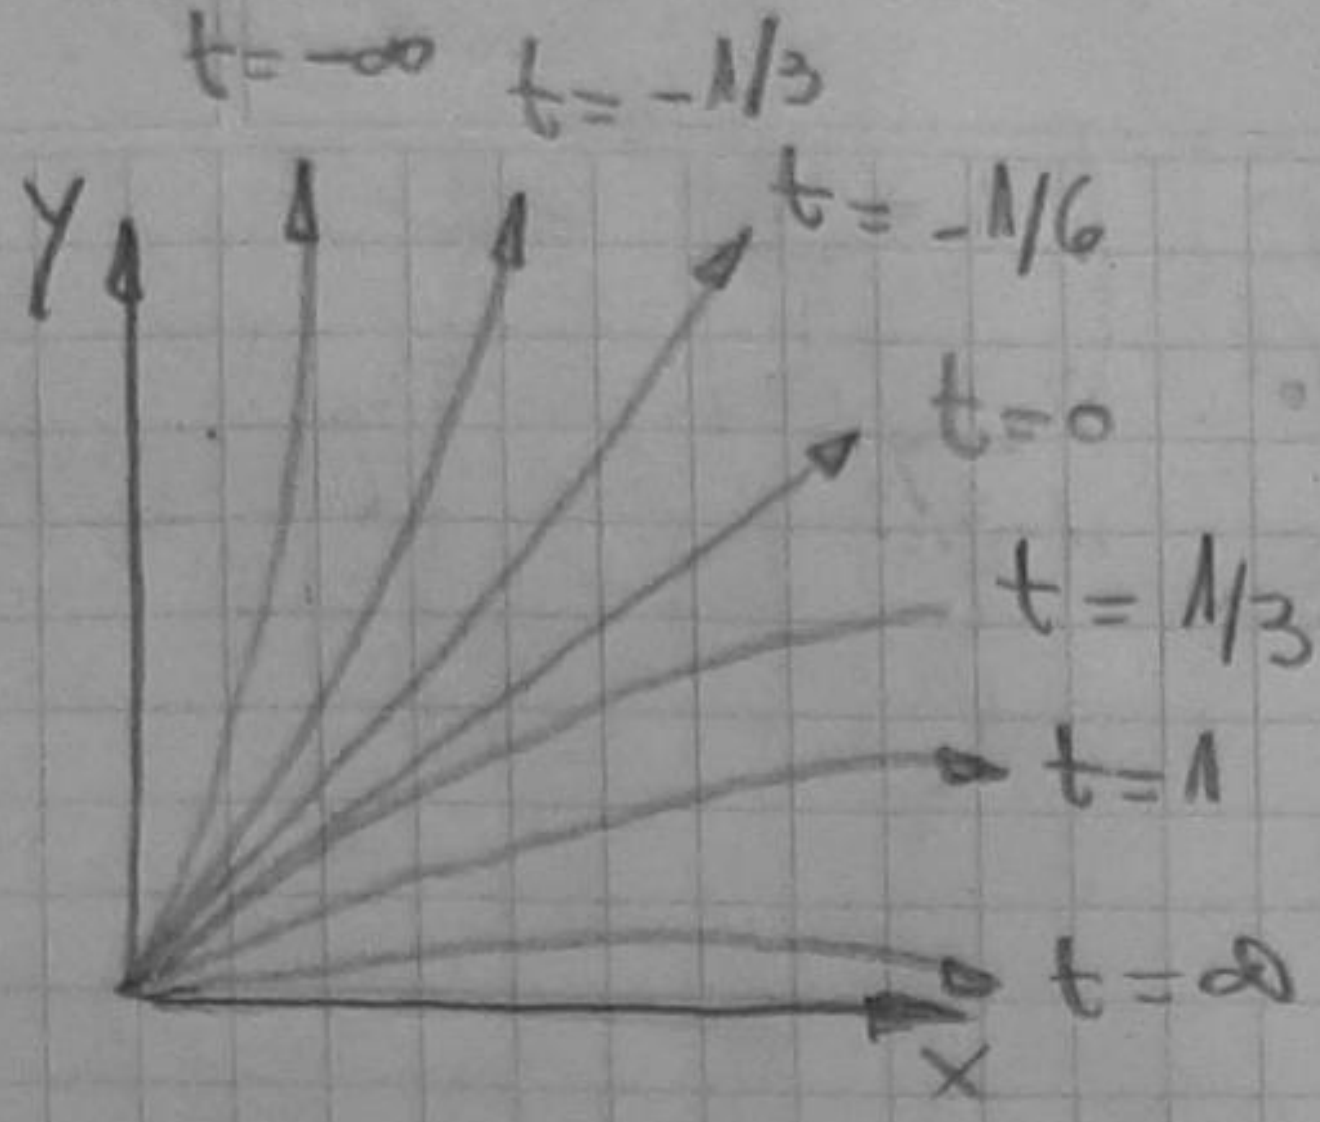 t = -∞
t = -1/3
t = -1/6
y
t = 0
t = 1/3
t = 1
t = ∞
x